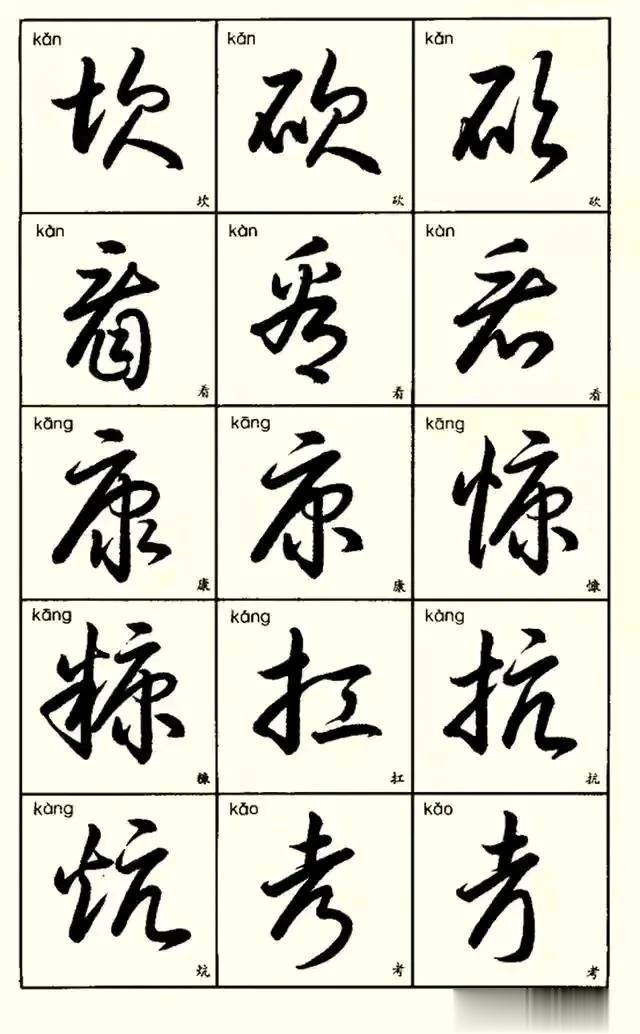 kǎn kǎn kǎn
坎 砍 砍
坎 砍 砍
kàn kàn kàn
看 看 看
看 看 看
kāng kāng kāng
康 康 慷
康 康 慷
kāng káng kàng
糠 扛 抗
糠 扛 抗
kàng kǎo kǎo
炕 考 考
炕 考 考